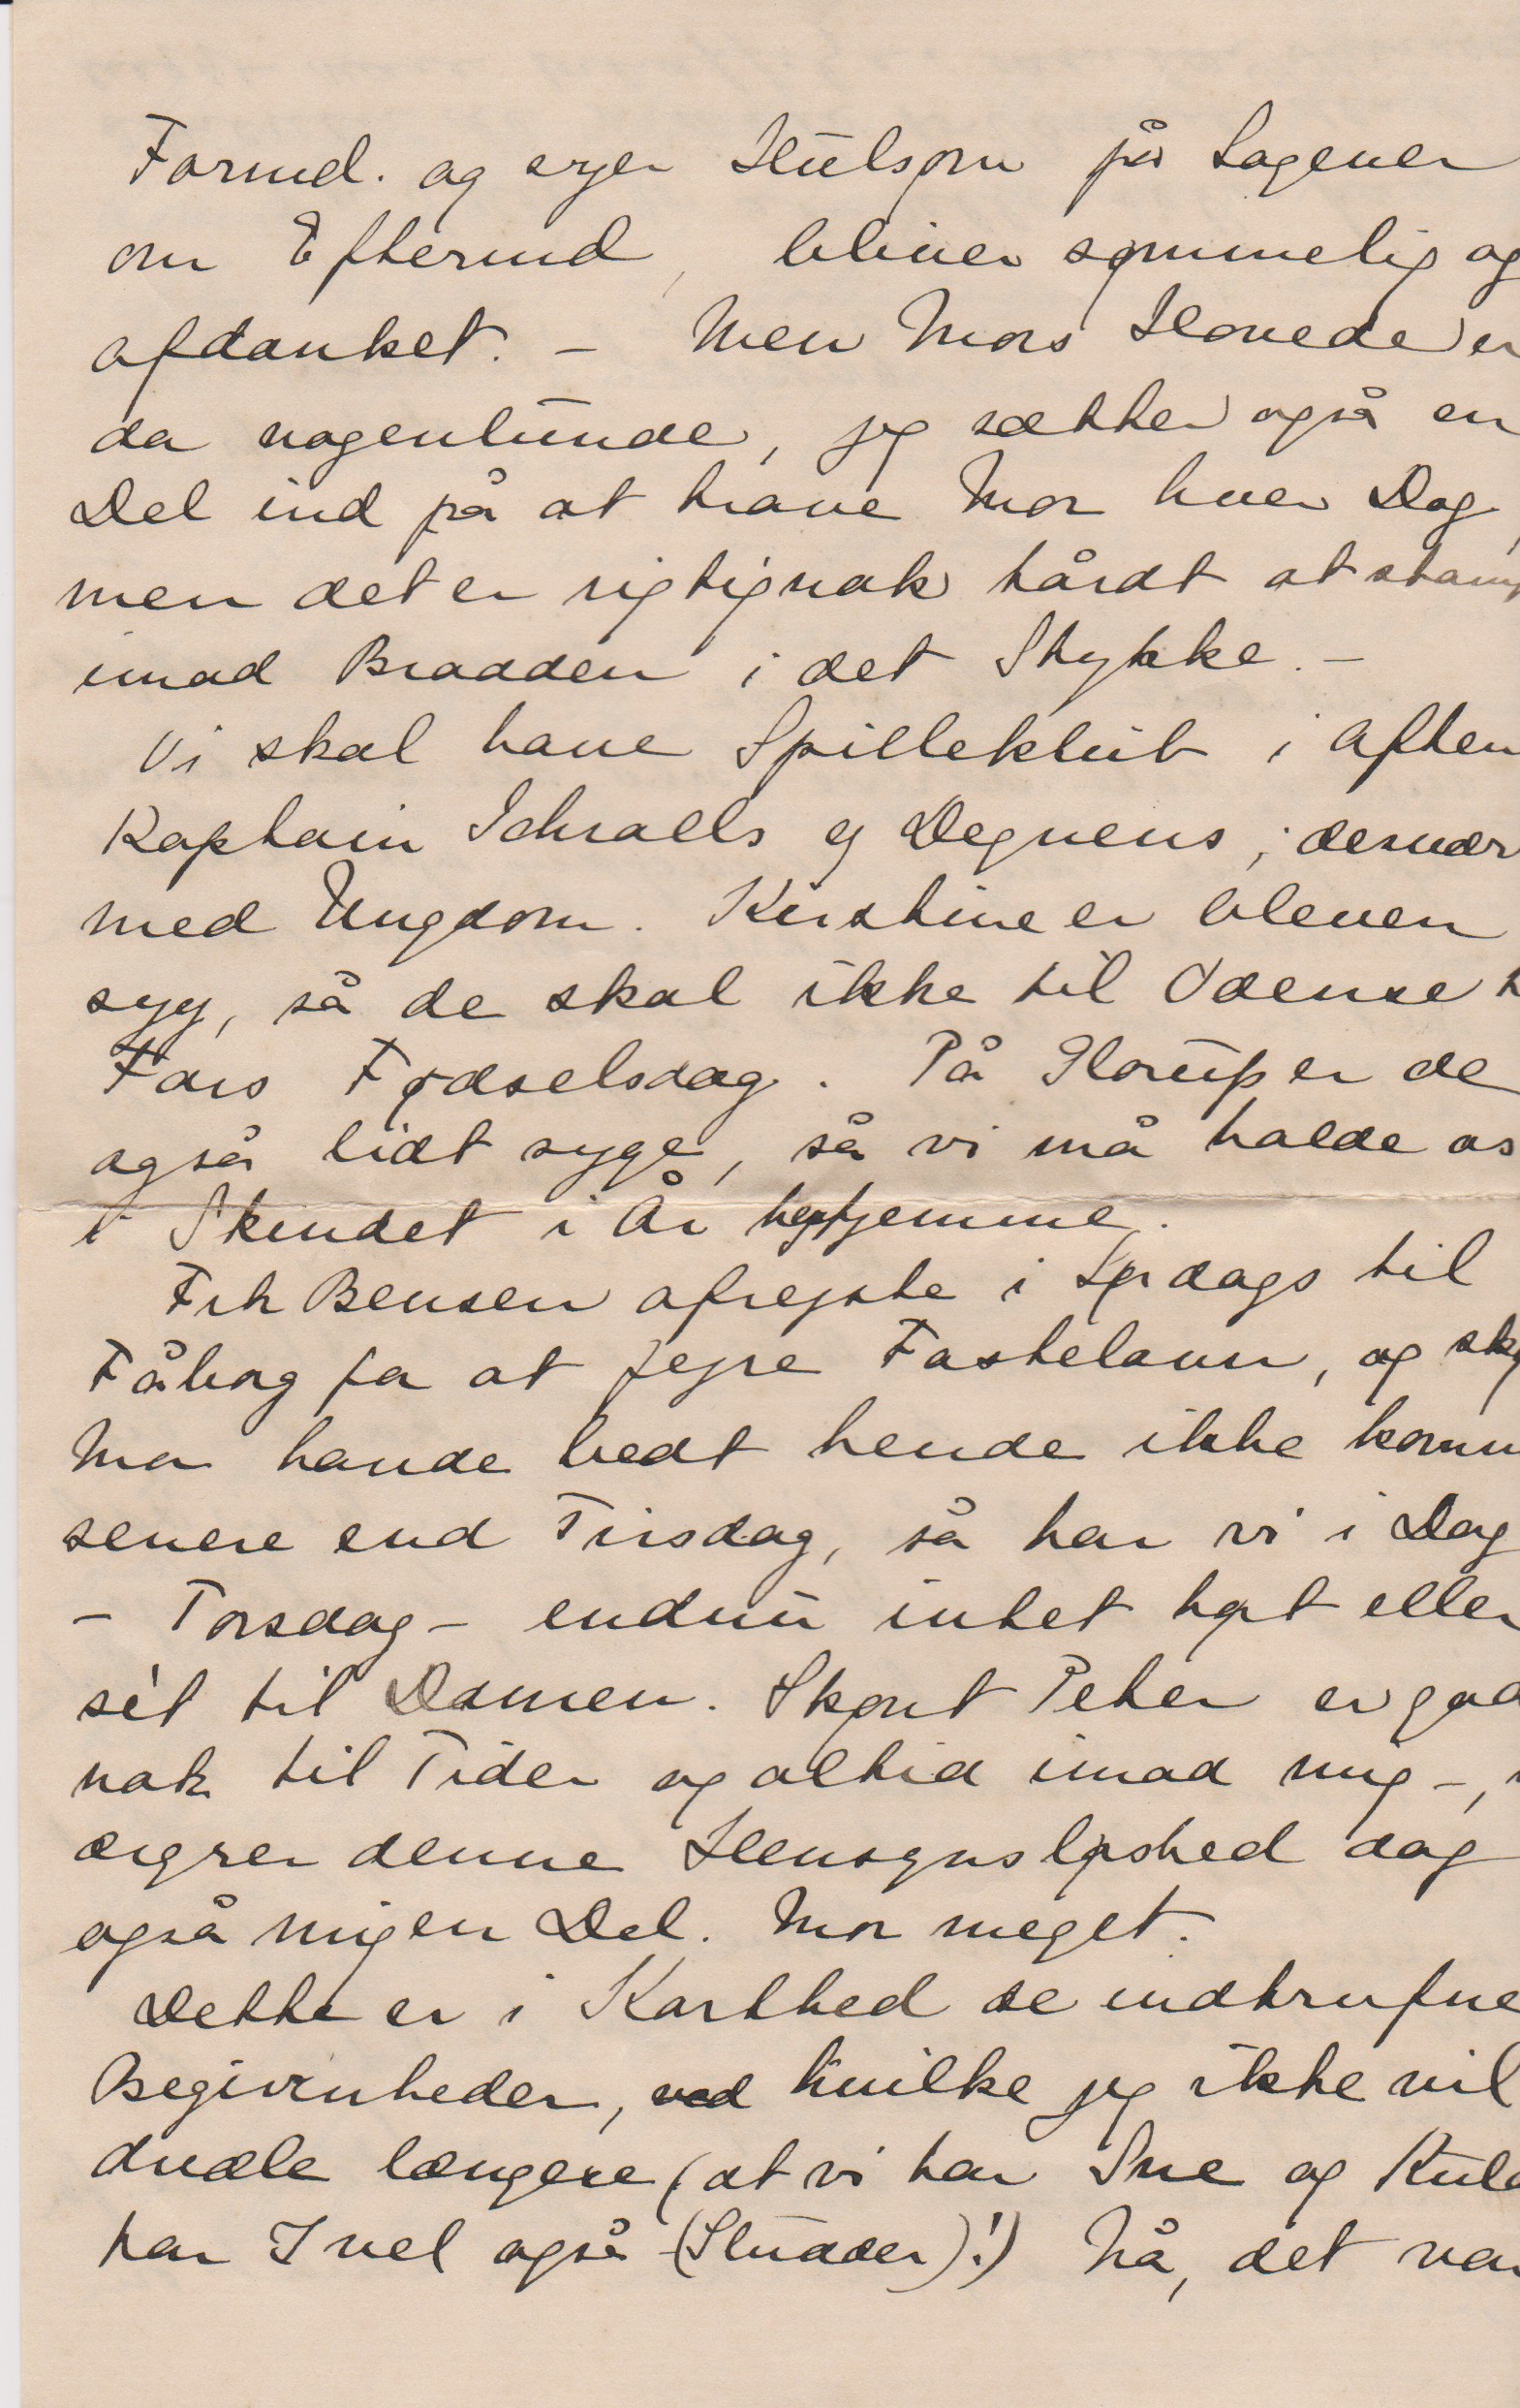 Formd. og syer Hulsøm på Lagener
om Eftermd, bliver sømmelig og
afdanket. – Men Mors Hovede er
da nogenlunde, jeg sætter også en
Del ind på at trave Mor hver Dag,
men det er rigtignok hårdt at stamp
imod Brodden i det Stykke. –
Vi skal have Spilleklub i Aften
Kaptain Schraells og Degnens, desvær
med Ungdom. Kirstine er bleven
syg, så de skal ikke til Odense t
Fars Fødselsdag. På Glorup er de
også lidt syge, så vi må holde os
i Skindet i År herhjemme.
Frk Bensen afrejste i Lørdags til
Fåborg for at fejre Fastelavn, og skø
Mor havde bedt hende ikke komm
senere end Tirsdag, så har vi i Dag
– Torsdag – endnu intet hørt eller
sét til Damen. Skønt Peter er god
nok til Tider og altid imod mig –,
ærgrer denne Hensynsløshed dog
også mig en Del. Mor meget.
Dette er i Korthed de indtrufne
Begivenheder, ved hvilke jeg ikke vil
dvæle længere (at vi har Sne og Kuld
har I vel også (Sludder)!) Nå, det var